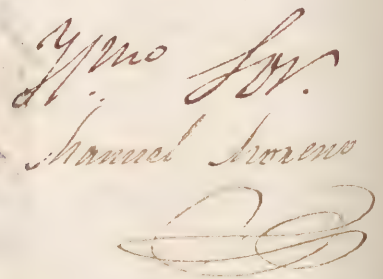 Yllmo Sor.
Manuel Moreno